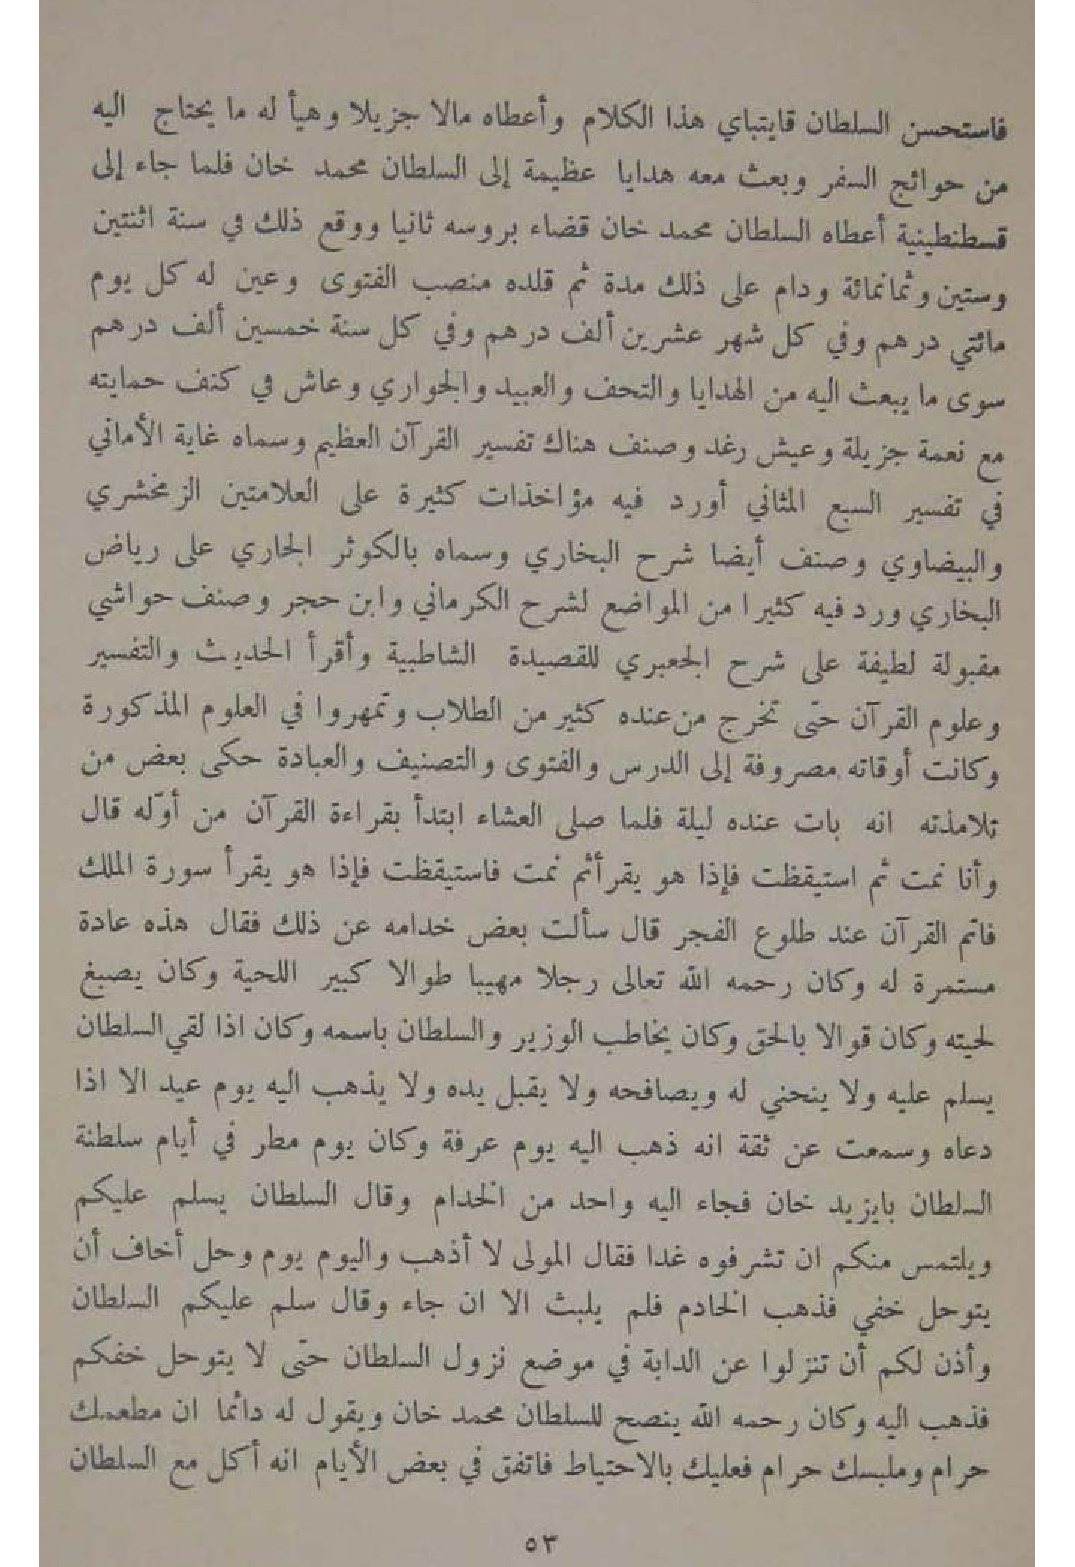 فاستحسن السلطان قايتباي هذا الكلام وأعطاه مالا جزيلا وهيأ له ما يحتاج اليه
من حوائج السفر وبعث معه هدايا عظيمة إلى السلطان محمد خان فلما جاء إلى
قسطنطينية أعطاه السلطان محمد خان قضاء بروسه ثانيا ووقع ذلك في سنة اثنتين
وستين وثمانمائة ودام على ذلك مدة ثم قلده منصب الفتوى وعين له كل يوم
مائتي درهم وفي كل شهر عشرين ألف درهم وفي كل سنة خمسين ألف درهم
سوى ما يبعث اليه من الهدايا والتحف والعبيد والجواري وعاش في كنف حمايته
مع نعمة جزيلة وعيش رغد وصنف هناك تفسير القرآن العظيم وسماه غاية الأماني
في تفسير السبع المثاني أورد فيه مؤاخذات كثيرة على العلامتين الزمخشري
والبيضاوي وصنف أيضا شرح البخاري وسماه بالكوثر الجاري على رياض
البخاري ورد فيه كثيرا من المواضع لشرح الكرماني وابن حجر وصنف حواشي
مقبولة لطيفة على شرح الجعبري للقصيدة الشاطبية وأقرأ الحديث والتفسير
وعلوم القرآن حتى تخرج من عنده كثير من الطلاب وتمهروا في العلوم المذكورة
وكانت أوقاته مصروفة إلى الدرس والفتوى والتصنيف والعبادة حكى بعض من
تلامذته انه بات عنده ليلة فلما صلى العشاء ابتدأ بقراءة القرآن من أوّله قال
وأنا نمت ثم استيقظت فإذا هو يقرأ ثم نمت فاستيقظت فإذا هو يقرأ سورة الملك
فاتم القرآن عند طلوع الفجر قال سألت بعض خدامه عن ذلك فقال هذه عادة
مستمرة له وكان رحمه الله تعالى رجلا مهيبا طوالا كبير اللحية وكان يصبغ
لحيته وكان قوالا بالحق وكان يخاطب الوزير والسلطان باسمه وكان اذا لقي السلطان
يسلم عليه ولا ينحني له ويصافحه ولا يقبل يده ولا يذهب اليه يوم عيد الا اذا
دعاه وسمعت عن ثقة انه ذهب اليه يوم عرفة وكان يوم مطر في أيام سلطنة
السلطان بايزيد خان فجاء اليه واحد من الخدام وقال السلطان يسلم عليكم
ويلتمس منكم ان تشرفوه غدا فقال المولى لا أذهب واليوم يوم وحل أخاف أن
يتوحل خفي فذهب الخادم فلم يلبث الا ان جاء وقال سلم عليكم السلطان
وأذن لكم أن تنزلوا عن الدابة في موضع نزول السلطان حتى لا يتوحل خفكم
فذهب اليه وكان رحمه الله ينصح للسلطان محمد خان ويقول له دائما ان مطعمك
حرام وملبسك حرام فعليك بالاحتياط فاتفق في بعض الأيام انه أكل مع السلطان
٥٣